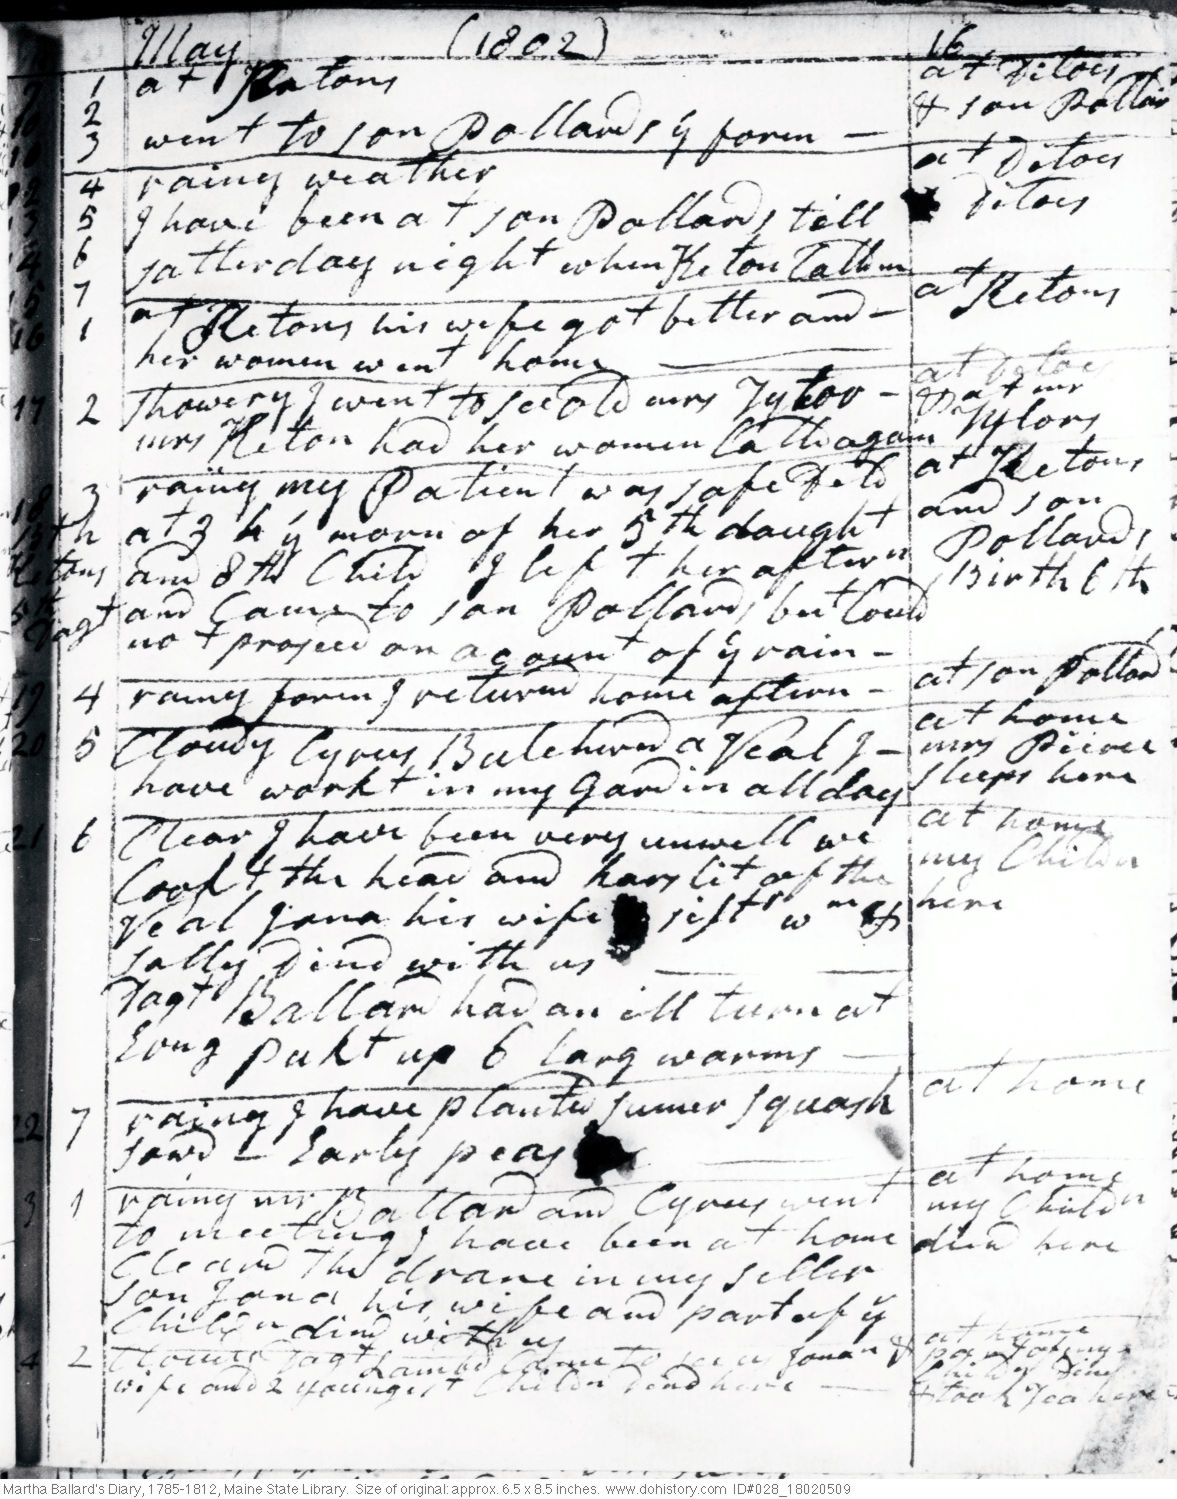 May (1802) 16
1 at Ketons at Ditoes
2 & son Pollard
3 went to son Pollards ÿ foren —
4 rainy weather at Ditoes
5 I have been at son Pollards till Ditoes
6 satterday night when Keton Calld me
7
16 1 at Ketons his wife got better and — at Ketons
her women went home
17 2 showery I went to see old mrs Tylor — & at mr Tylors
mrs Keton had her women Calld again
18 3 rainy my Patient was safe Deld at Ketons
at 3 h ÿ morn of her 5th daught and son
and 8th Child I left her aftern Pollards
and Came to son Pollards but Could Birth 6th
not proseed on acount of ÿ rain —
19 4 rainy foren I returnd home aftern — at son Pollard
20 5 Cloudy Cyrus Butcherd a Veal I — at home
have workt in my Gardin all day mrs Peirce
sleeps here
21 6 Clear I have been very unwell we at home
Cookt the head and harslit of the my Childn
Veal Jona his wife sistr wm & here
sally Dind with us
Dagt Ballard had an ill turn at
Long pukt up 6 larg warms —
22 7 rainy I have planted sumer squash at home
sowd — Early peas
3 1 rainy mr Ballard and Cyrus went at home
to meeting I have been at home my Childn
Cleard The drane in my seller dind here
son Jona his wife and part of ÿ
Childn dind with us
4 2 Dagt Lambd Came to see us Jonan & at home
wife and 2 youngest Childn dind here — part of my
Childn Dind
& took Tea here